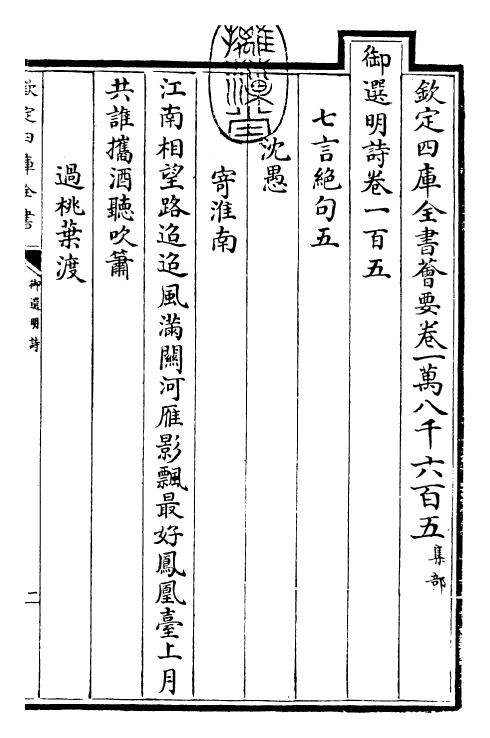 欽定四庫全書薈要卷一萬八千六百五集部
御選明詩卷一百五
七言絶句五
沈愚
寄淮南
江南相望路迢迢風滿關河雁影飄最好鳳凰臺上月
共誰攜酒聽吹簫
過桃葉渡
欽定四庫全書
御選明詩